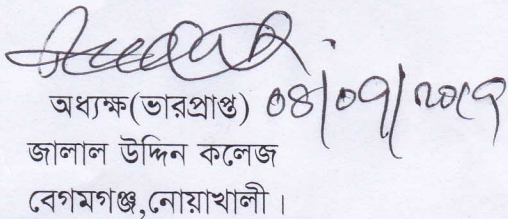 অধ্যক্ষ(ভারপ্রাপ্ত) ০৪/০৭/২০১৭
জালাল উদ্দিন কলেজ
বেগমগঞ্জ,নোয়াখালী।